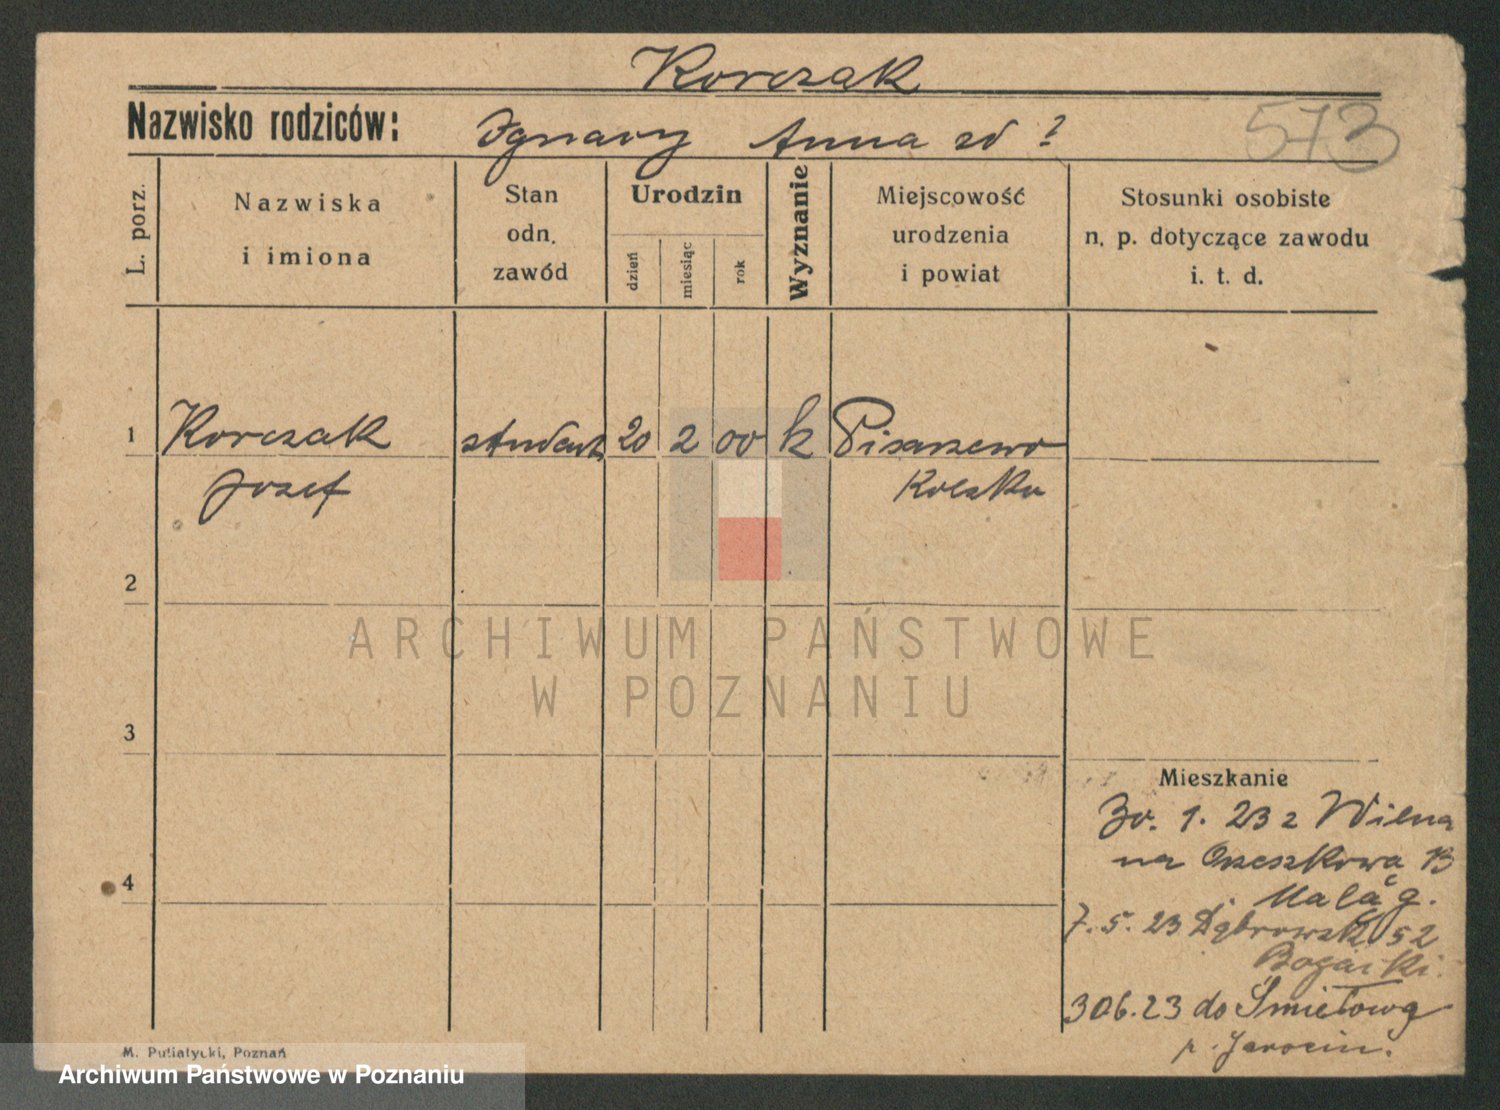 Korczak
Nazwisko rodziców: Ignacy Anna zd ?
573
L. porz.
Nazwiska
i imiona
Stan
odn.
zawód
Urodzin
dzień
miesiąc
rok
Wyznanie
Miejscowość
urodzenia
i powiat
Stosunki osobiste
n. p. dotyczące zawodu
i. t. d.
1 Korczak student 20 2 00 k Pisarzewo
Józef
2
ARCHIWUM PAŃSTWOWE
W POZNANIU
3
Mieszkanie
30. 1. 23 z Wilna
na
4
7. 5. 23 52
306.23 do
p. Jarocin.
M. Putiatycki, Poznań
Archiwum Państwowe w Poznaniu